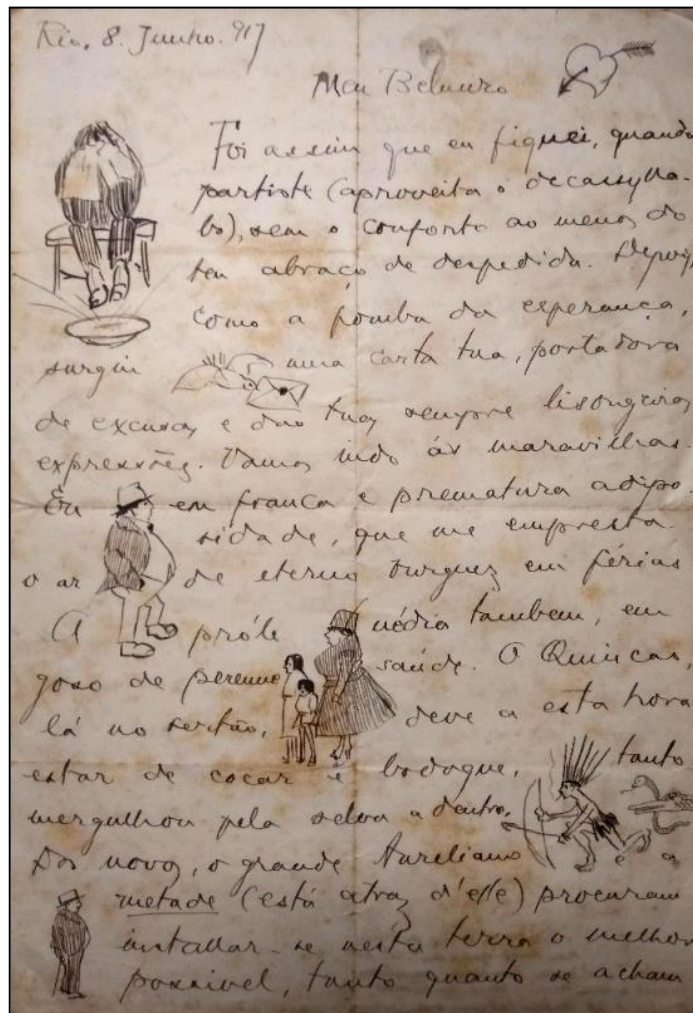 Rio, 8. Junho. 917
Meu Belmiro
Foi assim que eu fiquei, quando
partiste (aproveita o decassylla-
bo), sem o conforto ao menos do
teu abraço de despedida. Depois,
como a pomba da esperança,
surgiu uma carta tua, portadora
de excusas e das tuas sempre lisongeiras
expressões. Vamos indo ás maravilhas.
Eu em franca e prematura adipo
sidade, que me empresta
o ar de eterno burguez em férias
A próle nédia tambem, em
goso de perenne saúde. O Quincas,
lá no sertão, deve a esta hora
estar de cocar e bodoque, tanto
mergulhou pela selva a dentro.
Dos novos, o grande Aureliano e a
metade (está atraz d'elle) procuram
installar-se nesta terra o melhor
possivel, tanto quanto se acham